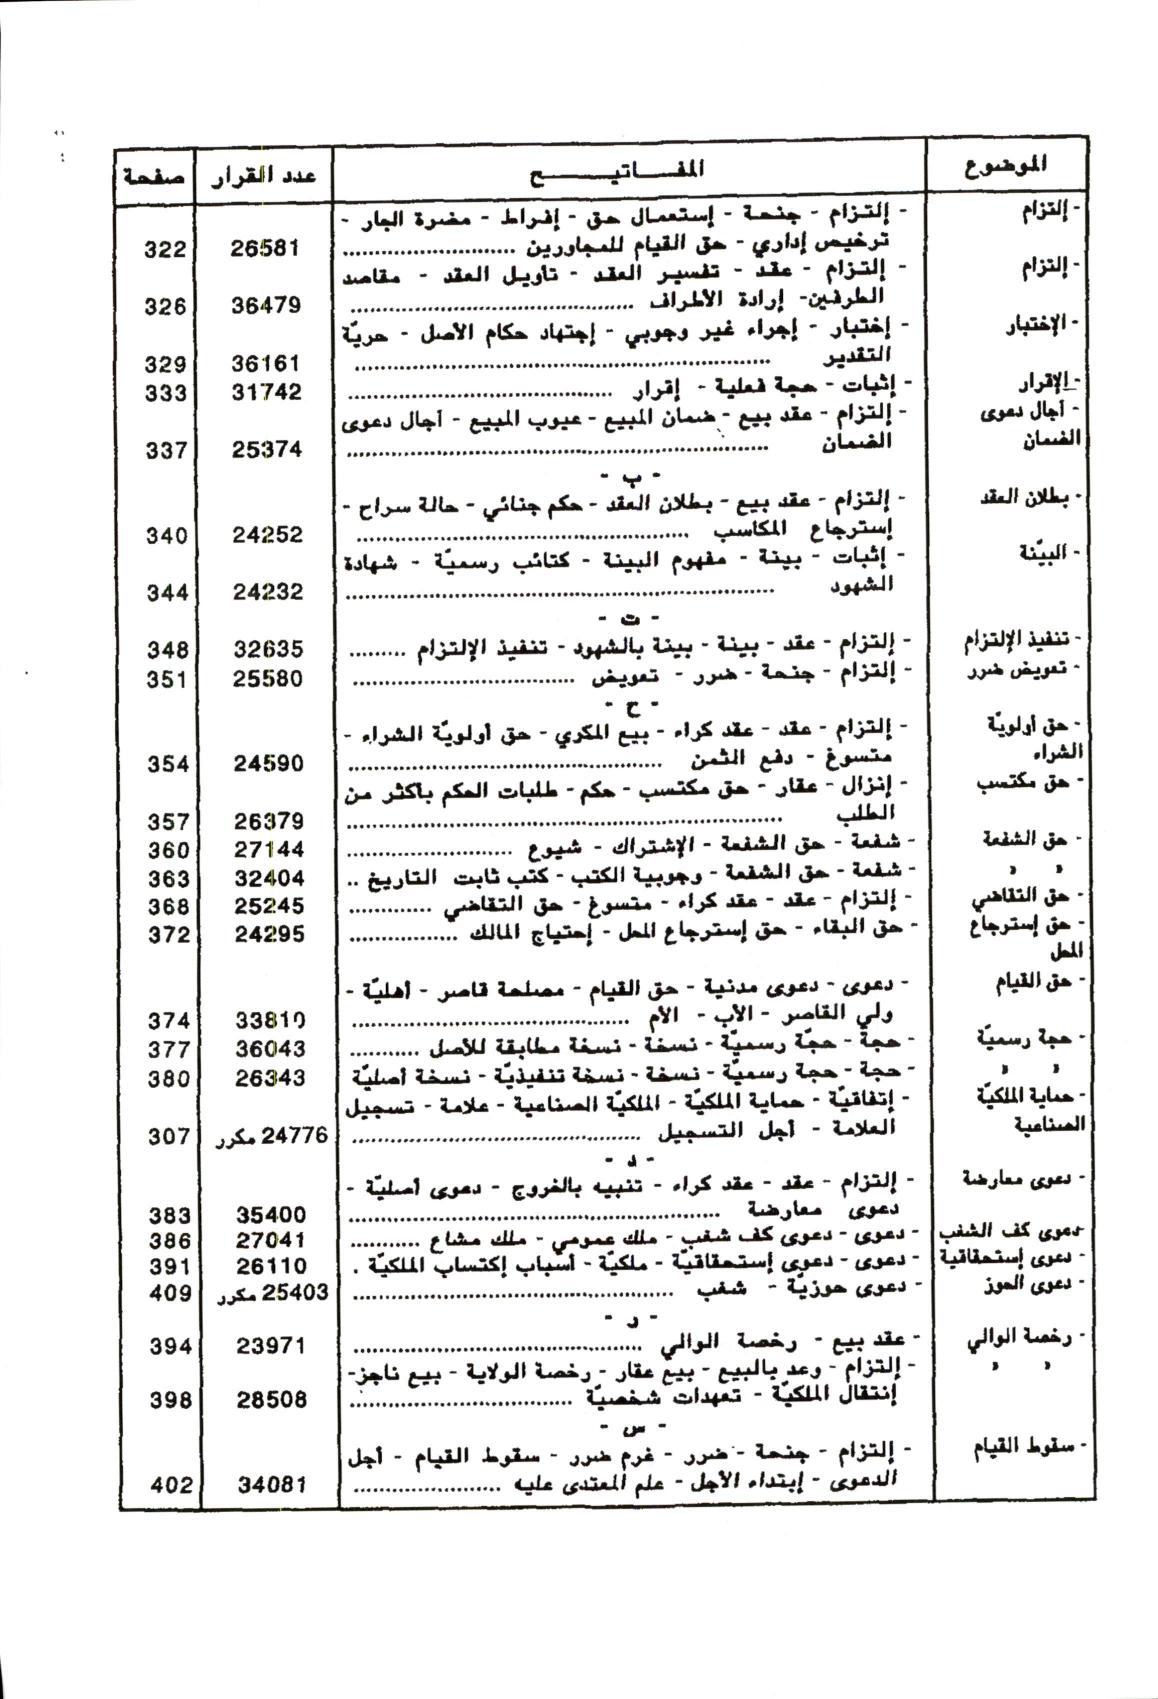 الموضوع المفـــاتيـــــح عدد القرار صفحة
- إلتزام - إلتـزام - جنحـة - إستعمـال حق - إفـراط - مضرة الجار -
ترخيص إداري - حق القيام للمجاورين ........................ 26581 322
- إلتزام - إلتـزام - عقـد - تفسير العقـد - تأويـل العقد - مقاصد
الطرفين- إرادة الأطراف ........................ 36479 326
- الإختبار - إختبار - إجراء غير وجوبي - إجتهاد حكام الأصل - حريّة
التقدير ........................ 36161 329
- الإقرار - إثبات - حجة فعلية - إقرار ........................ 31742 333
- أجال دعوى - إلتزام - عقد بيع - ضمان المبيع - عيوب المبيع - أجال دعوى
الضمان الضمان ........................ 25374 337
- ب -
- بطلان العقد - إلتزام - عقد بيع - بطلان العقد - حكم جنائي - حالة سراح -
إسترجاع المكاسب ........................ 24252 340
- البيّنة - إثبات - بينة - مفهوم البينة - كتائب رسميّة - شهادة
الشهود ........................ 24232 344
- ت -
- تنفيذ الإلتزام - إلتزام - عقد - بينة - بينة بالشهود - تنفيذ الإلتزام ......... 32635 348
- تعويض ضرر - إلتزام - جنحة - ضرر - تعويض ........................ 25580 351
- ح -
- حق أولويّة - إلتزام - عقد - عقد كراء - بيع المكري - حق أولويّة الشراء -
الشراء متسوغ - دفع الثمن ........................ 24590 354
- حق مكتسب - إنزال - عقار - حق مكتسب - حكم - طلبات الحكم بأكثر من
الطلب ........................ 26379 357
- حق الشفعة - شفعة - حق الشفعة - الإشتراك - شيوع ........................ 27144 360
" " - شفعة - حق الشفعة - وجوبية الكتب - كتب ثابت التاريخ .. 32404 363
- حق التقاضي - إلتزام - عقد - عقد كراء - متسوغ - حق التقاضي ............ 25245 368
- حق إسترجاع - حق البقاء - حق إسترجاع المحل - إحتياج المالك ................ 24295 372
المحل
- حق القيام - دعوى - دعوى مدنية - حق القيام - مصلحة قاصر - أهليّة -
ولي القاصر - الأب - الأم ........................ 33810 374
- حجة رسميّة - حجة - حجّة رسميّة - نسخة - نسخة مطابقة للأصل ........... 36043 377
" " - حجة - حجة رسميّة - نسخة - نسخة تنفيذيّة - نسخة أصليّة 26343 380
- حماية الملكيّة - إتفاقيّة - حماية الملكيّة - الملكيّة الصناعية - علامة - تسجيل
الصناعية العلامة - أجل التسجيل ........................ 24776 مكرر 307
- د -
- دعوى معارضة - إلتزام - عقد - عقد كراء - تنبيه بالخروج - دعوى أصليّة -
دعوى معارضة ........................ 35400 383
-دعوى كف الشغب - دعوى - دعوى كف شغب - ملك عمومي - ملك مشاع ........... 27041 386
- دعوى إستحقاقية - دعوى - دعوى إستحقاقيّة - ملكيّة - أسباب إكتساب الملكيّة . 26110 391
- دعوى الحوز - دعوى حوزيّة - شغب ........................ 25403 مكرر 409
- ر -
- رخصة الوالي - عقد بيع - رخصة الوالي ........................ 23971 394
" " - إلتزام - وعد بالبيع - بيع عقار - رخصة الولاية - بيع ناجز-
إنتقال الملكيّة - تعهدات شخصيّة ........................ 28508 398
- س -
- سقوط القيام - إلتزام - جنحة - ضرر - غرم ضرر - سقوط القيام - أجل
الدعوى - إبتداء الأجل - علم المعتدى عليه ........................ 34081 402